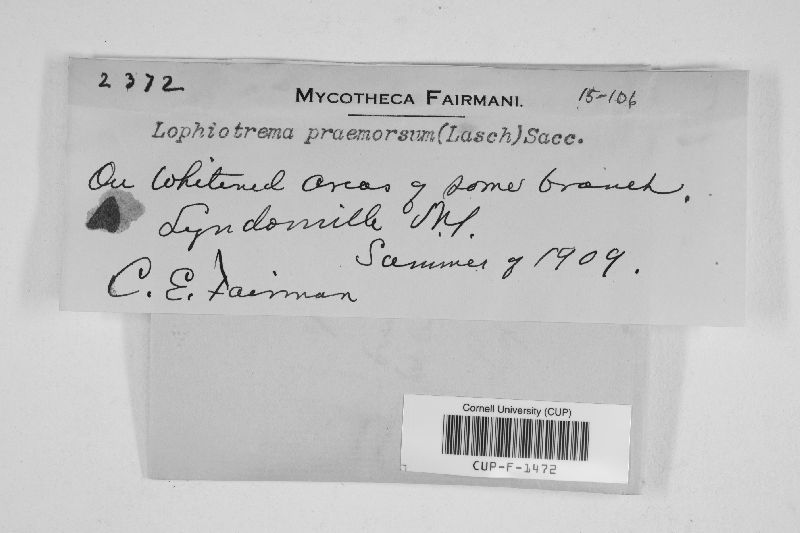 2372
MYCOTHECA FAIRMANI.
15-106
Lophiotrema praemorsum(Lasch)Sacc.
On Whitened areas of some branch.
Lyndonville N.Y.
Summer of 1909.
C. E. Fairman
Cornell University (CUP)
CUP-F-1472